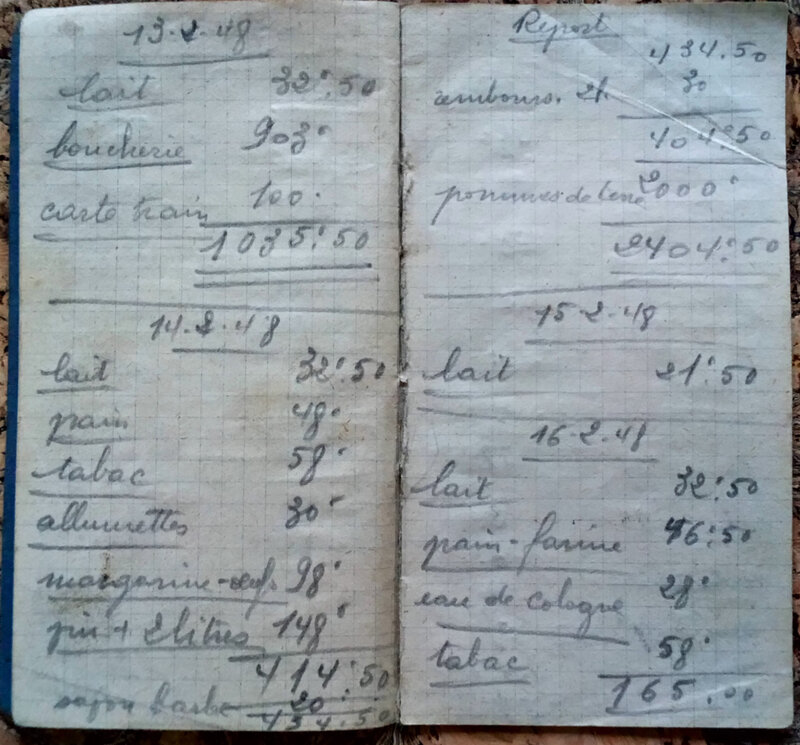 13-2-48
lait 32.50
boucherie 903.
carte train 100.
1035.50
14-2-48
lait 32.50
pain 48.
tabac 58.
allumettes 30.
margarine-oeufs 98.
+ 2 litres 148.
414.50
savon barbe 20.
434.50
Report
434.50
rembours. 30
404.50
pommes de terre 2000.
2404.50
15-2-48
lait 21.50
16-2-48
lait 32.50
pain-farine 46.50
eau de cologne 28.
tabac 58.
165.00